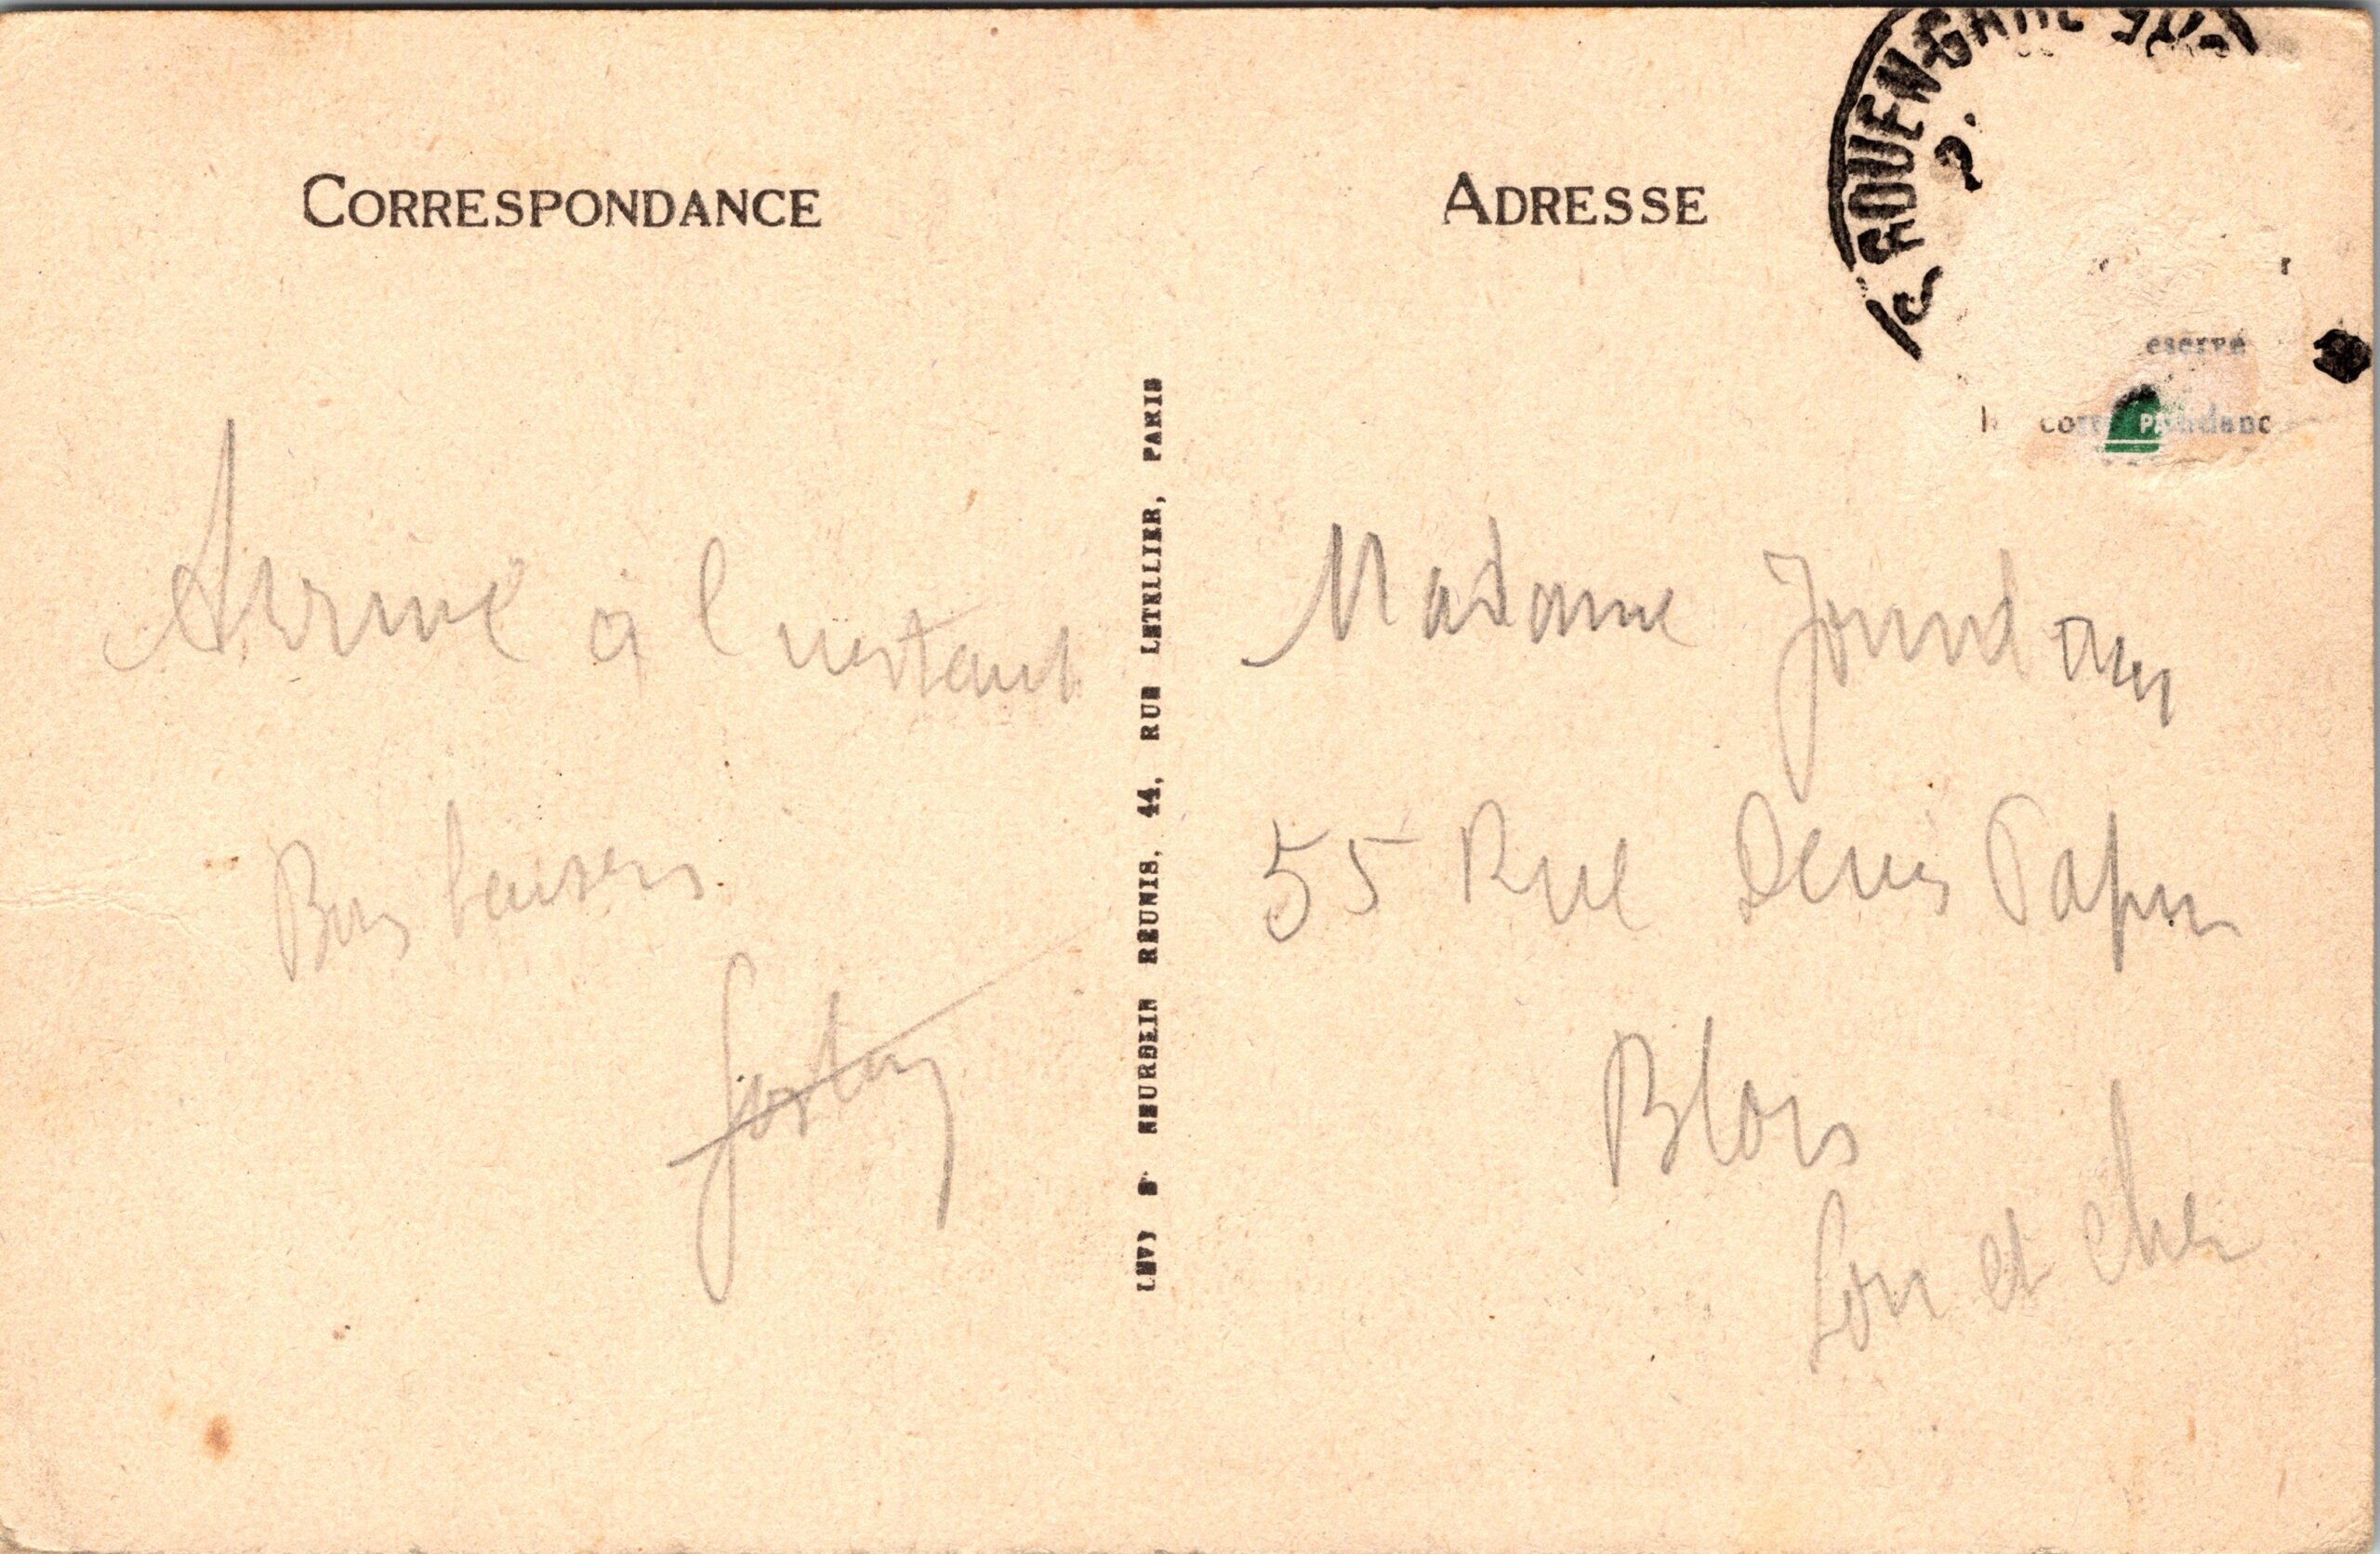 CORRESPONDANCE
Arrivé à l'instant
Bons baisers
Gaston
LEVY & NEURDEIN REUNIS, 44, RUE LETELLIER, PARIS
ADRESSE
ROUEN-GARE
eservé
corr PA ndanc
Madame Jourdan
55 Rue Denis Papin
Blois
Loir et Cher